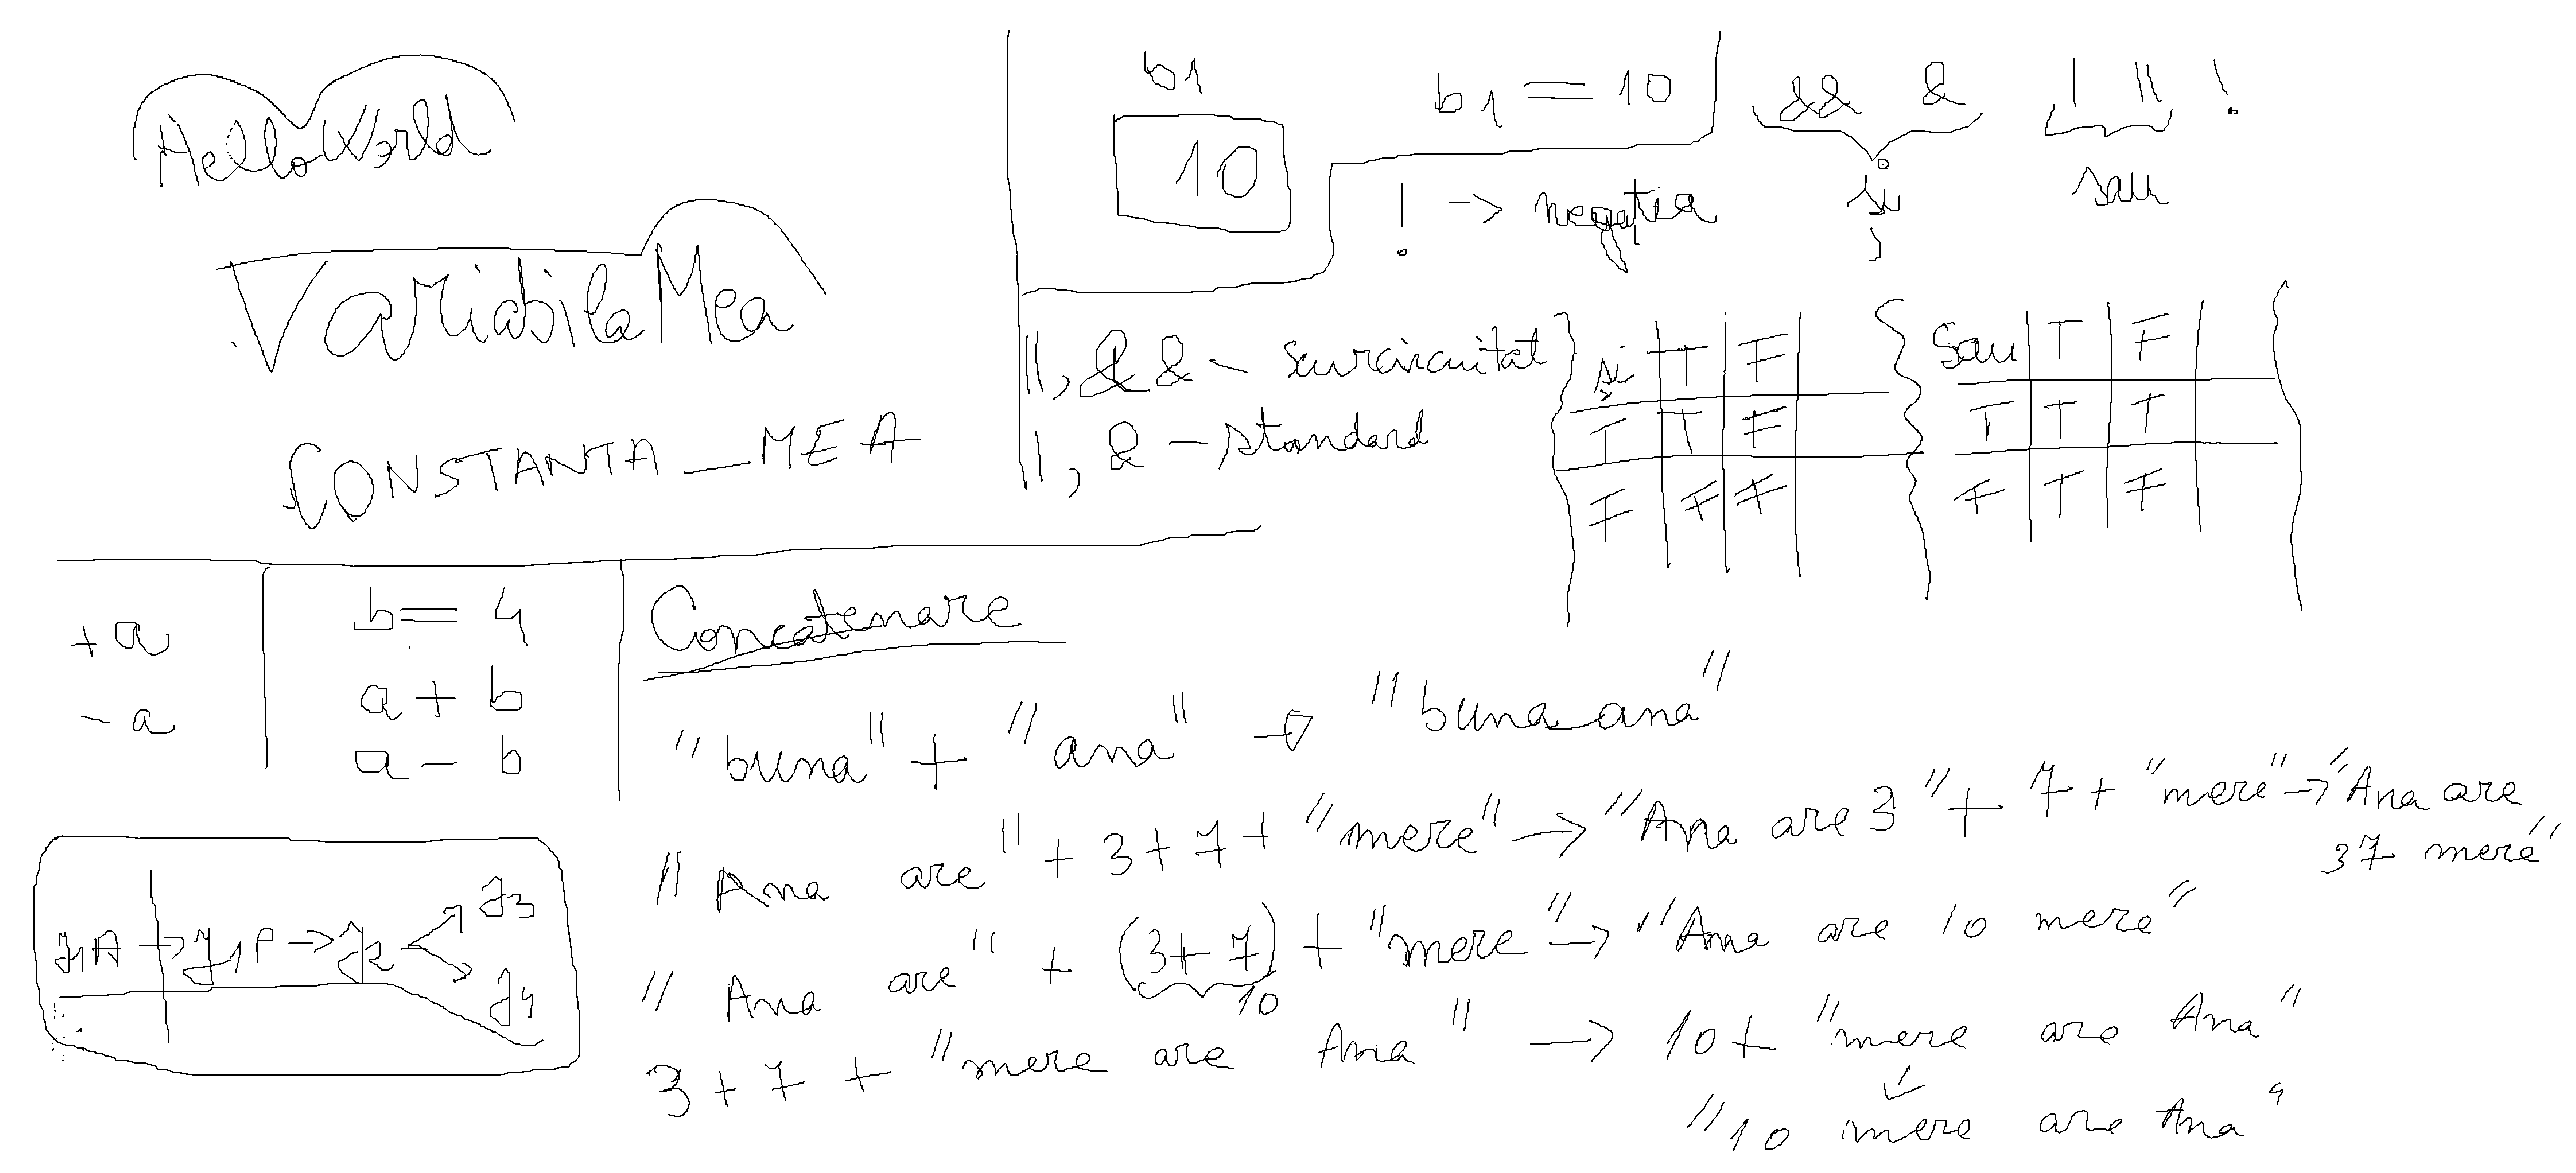 HelloWorld
VariabilaMea
CONSTANTA_MEA
b1
10
b1 = 10
&& &
și
| ||
sau
!
! -> negația
||, && - scurcircuitat
|, & - standard
și T F
T T F
F F F
Sau T F
T T T
F T F
+a
-a
b = 4
a + b
a - b
Concatenare
"buna" + "ana" -> "buna ana"
"Ana are" + 3 + 7 + "mere" -> "Ana are 3" + 7 + "mere" -> "Ana are
37 mere"
"Ana are" + (3+7) + "mere" -> "Ana are 10 mere"
10
3 + 7 + "mere are Ana" -> 10 + "mere are Ana"
"10 mere are Ana"